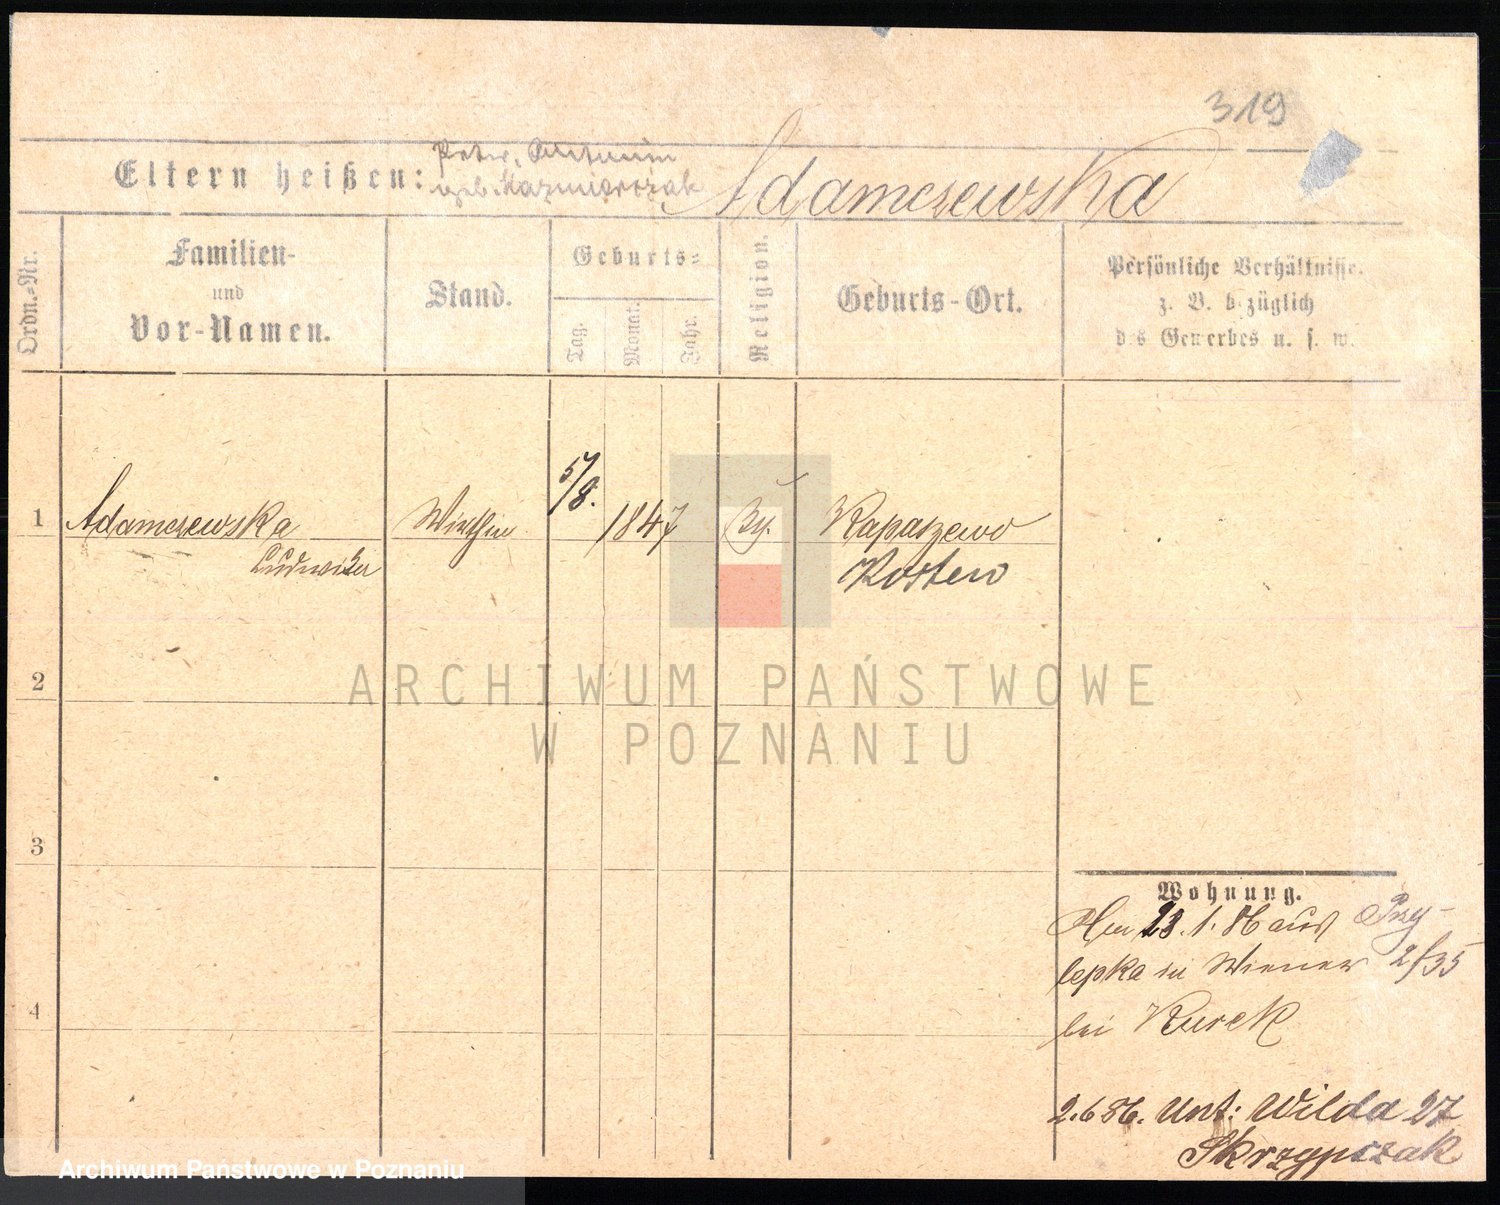 319
Eltern heißen: Peter, Antonina
geb. Kazmierczak Adamczewska
Ordn.=Nr.
Familien-
und
Vor-Namen.
Stand.
Geburts=
Tag.
Monat.
Jahr.
Religion.
Geburts-Ort.
Persönliche Verhältnisse.
z. B. bezüglich
des Gewerbes u. s. w.
1 Adamczewska Wirthin 5/8. 1847 Kapaszewo
Ludwika Kosten
2
ARCHIWUM PAŃSTWOWE
W POZNANIU
3
Wohnung.
23. 1. 86 aus
in Wiener 2/35
4
bei Kurek
2.6 86. Unt: Wilda 27
Skrzypczak
Archiwum Państwowe w Poznaniu